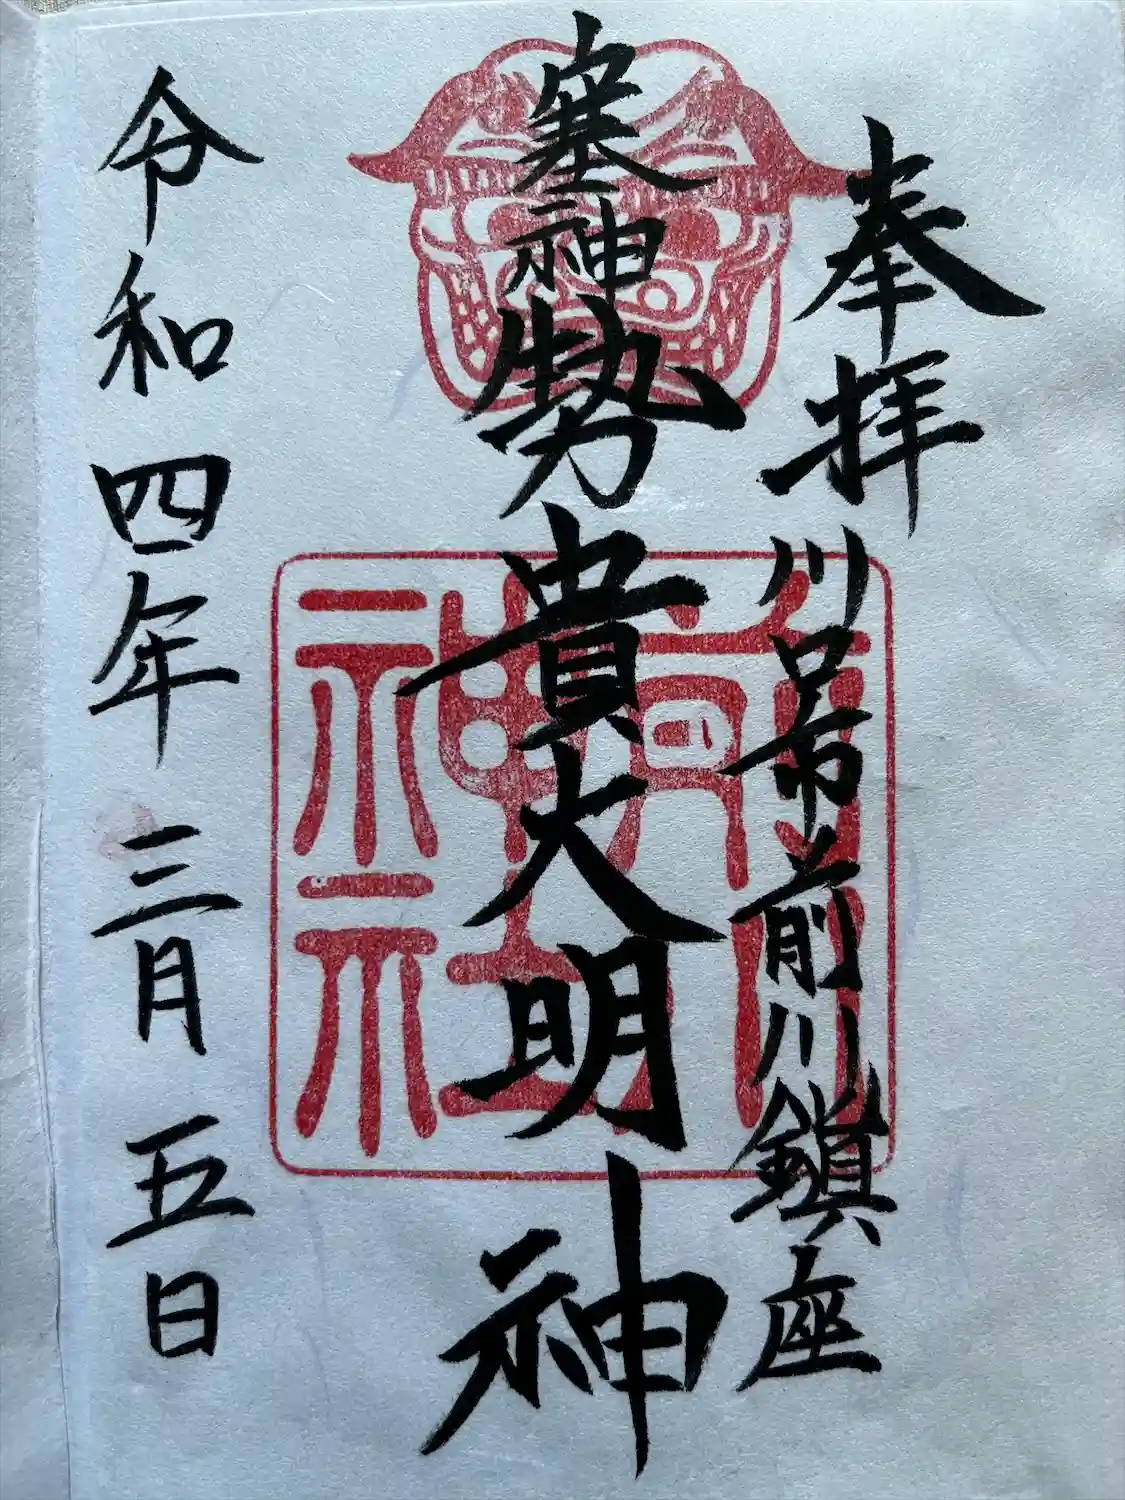 奉拝
川口市前川鎭座
塞神勢貴大明神
令和四年三月五日
前川
神社